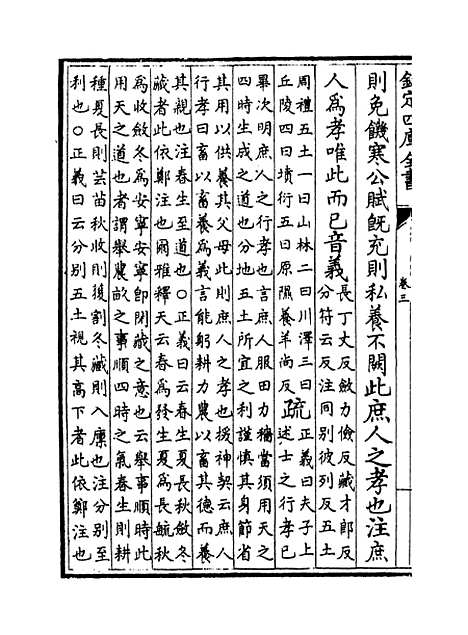 欽定四庫全書
卷三
則免饑寒公賦旣充則私養不闕此庶人之孝也注庶
人爲孝唯此而已音義
長丁丈反斂力儉反藏才郎反
分符云反注同别彼列反五土
周禮五土一曰山林二曰川澤三曰
丘陵四曰墳衍五曰原隰養羊尚反
疏
正義曰夫子上
述士之行孝已
畢次明庶人之行孝也言庶人服田力穡當須用天之
四時生成之道也分地五土所宜之利謹慎其身節省
其用以供養其父母此則庶人之孝也援神契云庶人
行孝曰畜以畜養爲義言能躬耕力農以畜其德而養
其親也注春生至道也○正義曰云春生夏長秋斂冬
藏者此依鄭注也爾雅釋天云春爲發生夏爲長毓秋
爲收斂冬爲安寧安寧卽閉藏之意也云舉事順時此
用天之道也者謂舉農畝之事順四時之氣春生則耕
種夏長則芸苗秋收則穫割冬藏則入廩也注分别至
利也○正義曰云分别五土視其高下者此依鄭注也